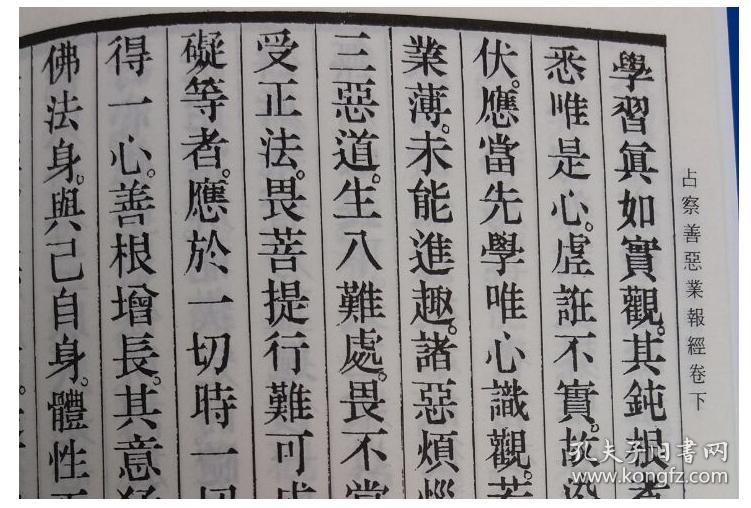 占察善惡業報經卷下
學習眞如實觀。其鈍根
悉唯是心。虛誑不實。故
伏。應當先學唯心識觀。若
業薄。未能進趣。諸惡煩惱
三惡道。生八難處。畏不常
受正法。畏菩提行難可成
礙等者。應於一切時一切
得一心。善根增長。其意猛
佛法身。與己自身。體性
孔夫子旧书网
www.kongfz.com